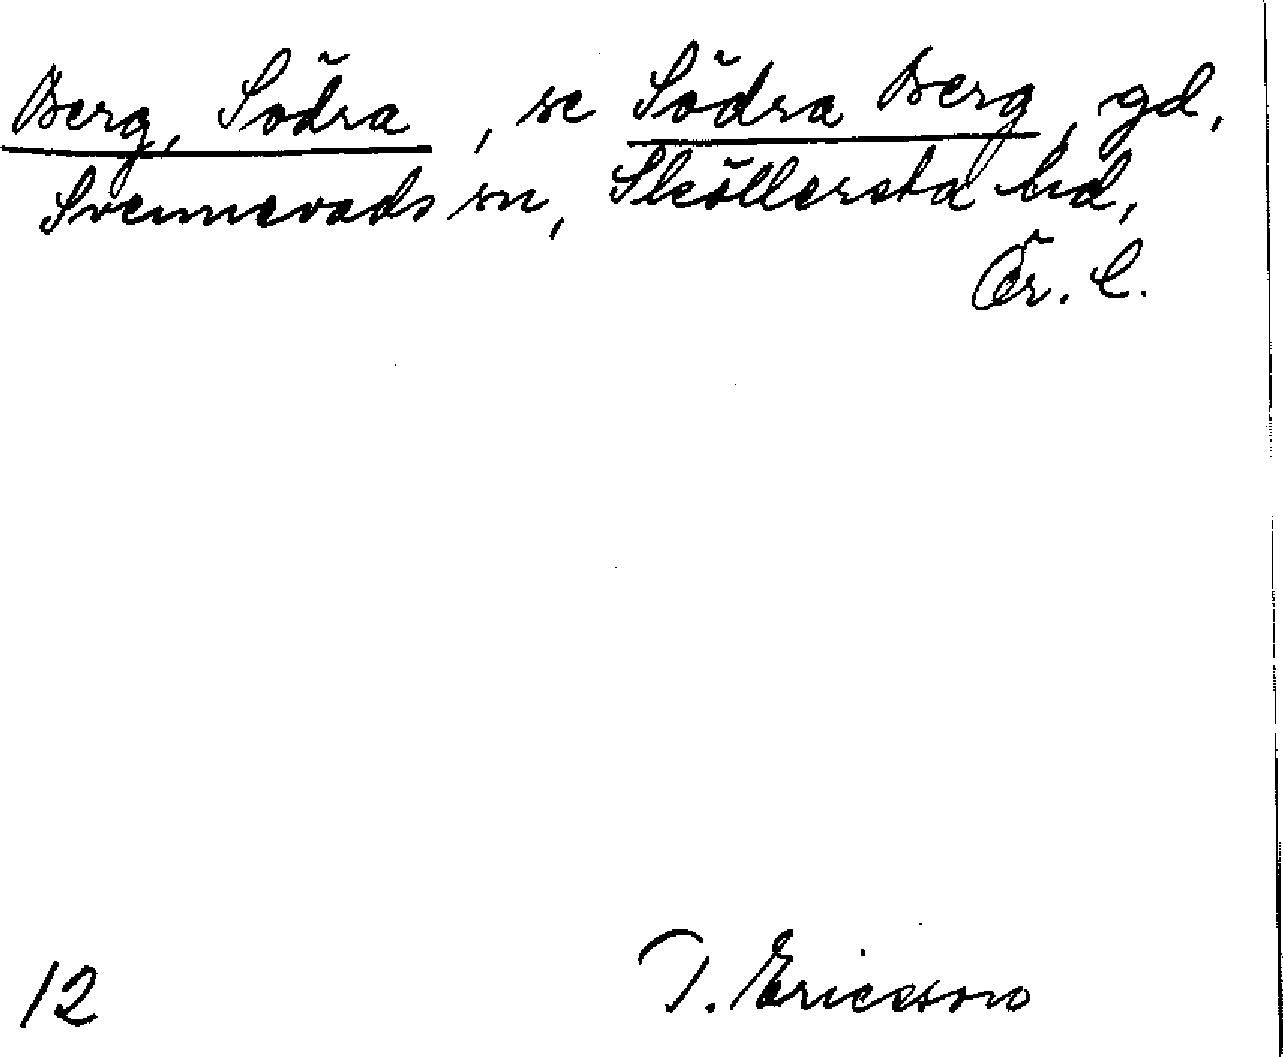 Berg, Södra, se Södra Berg, gd,
Svennevads sn, Sköllersta hd,
Ör. l.
12 T. Ericsson